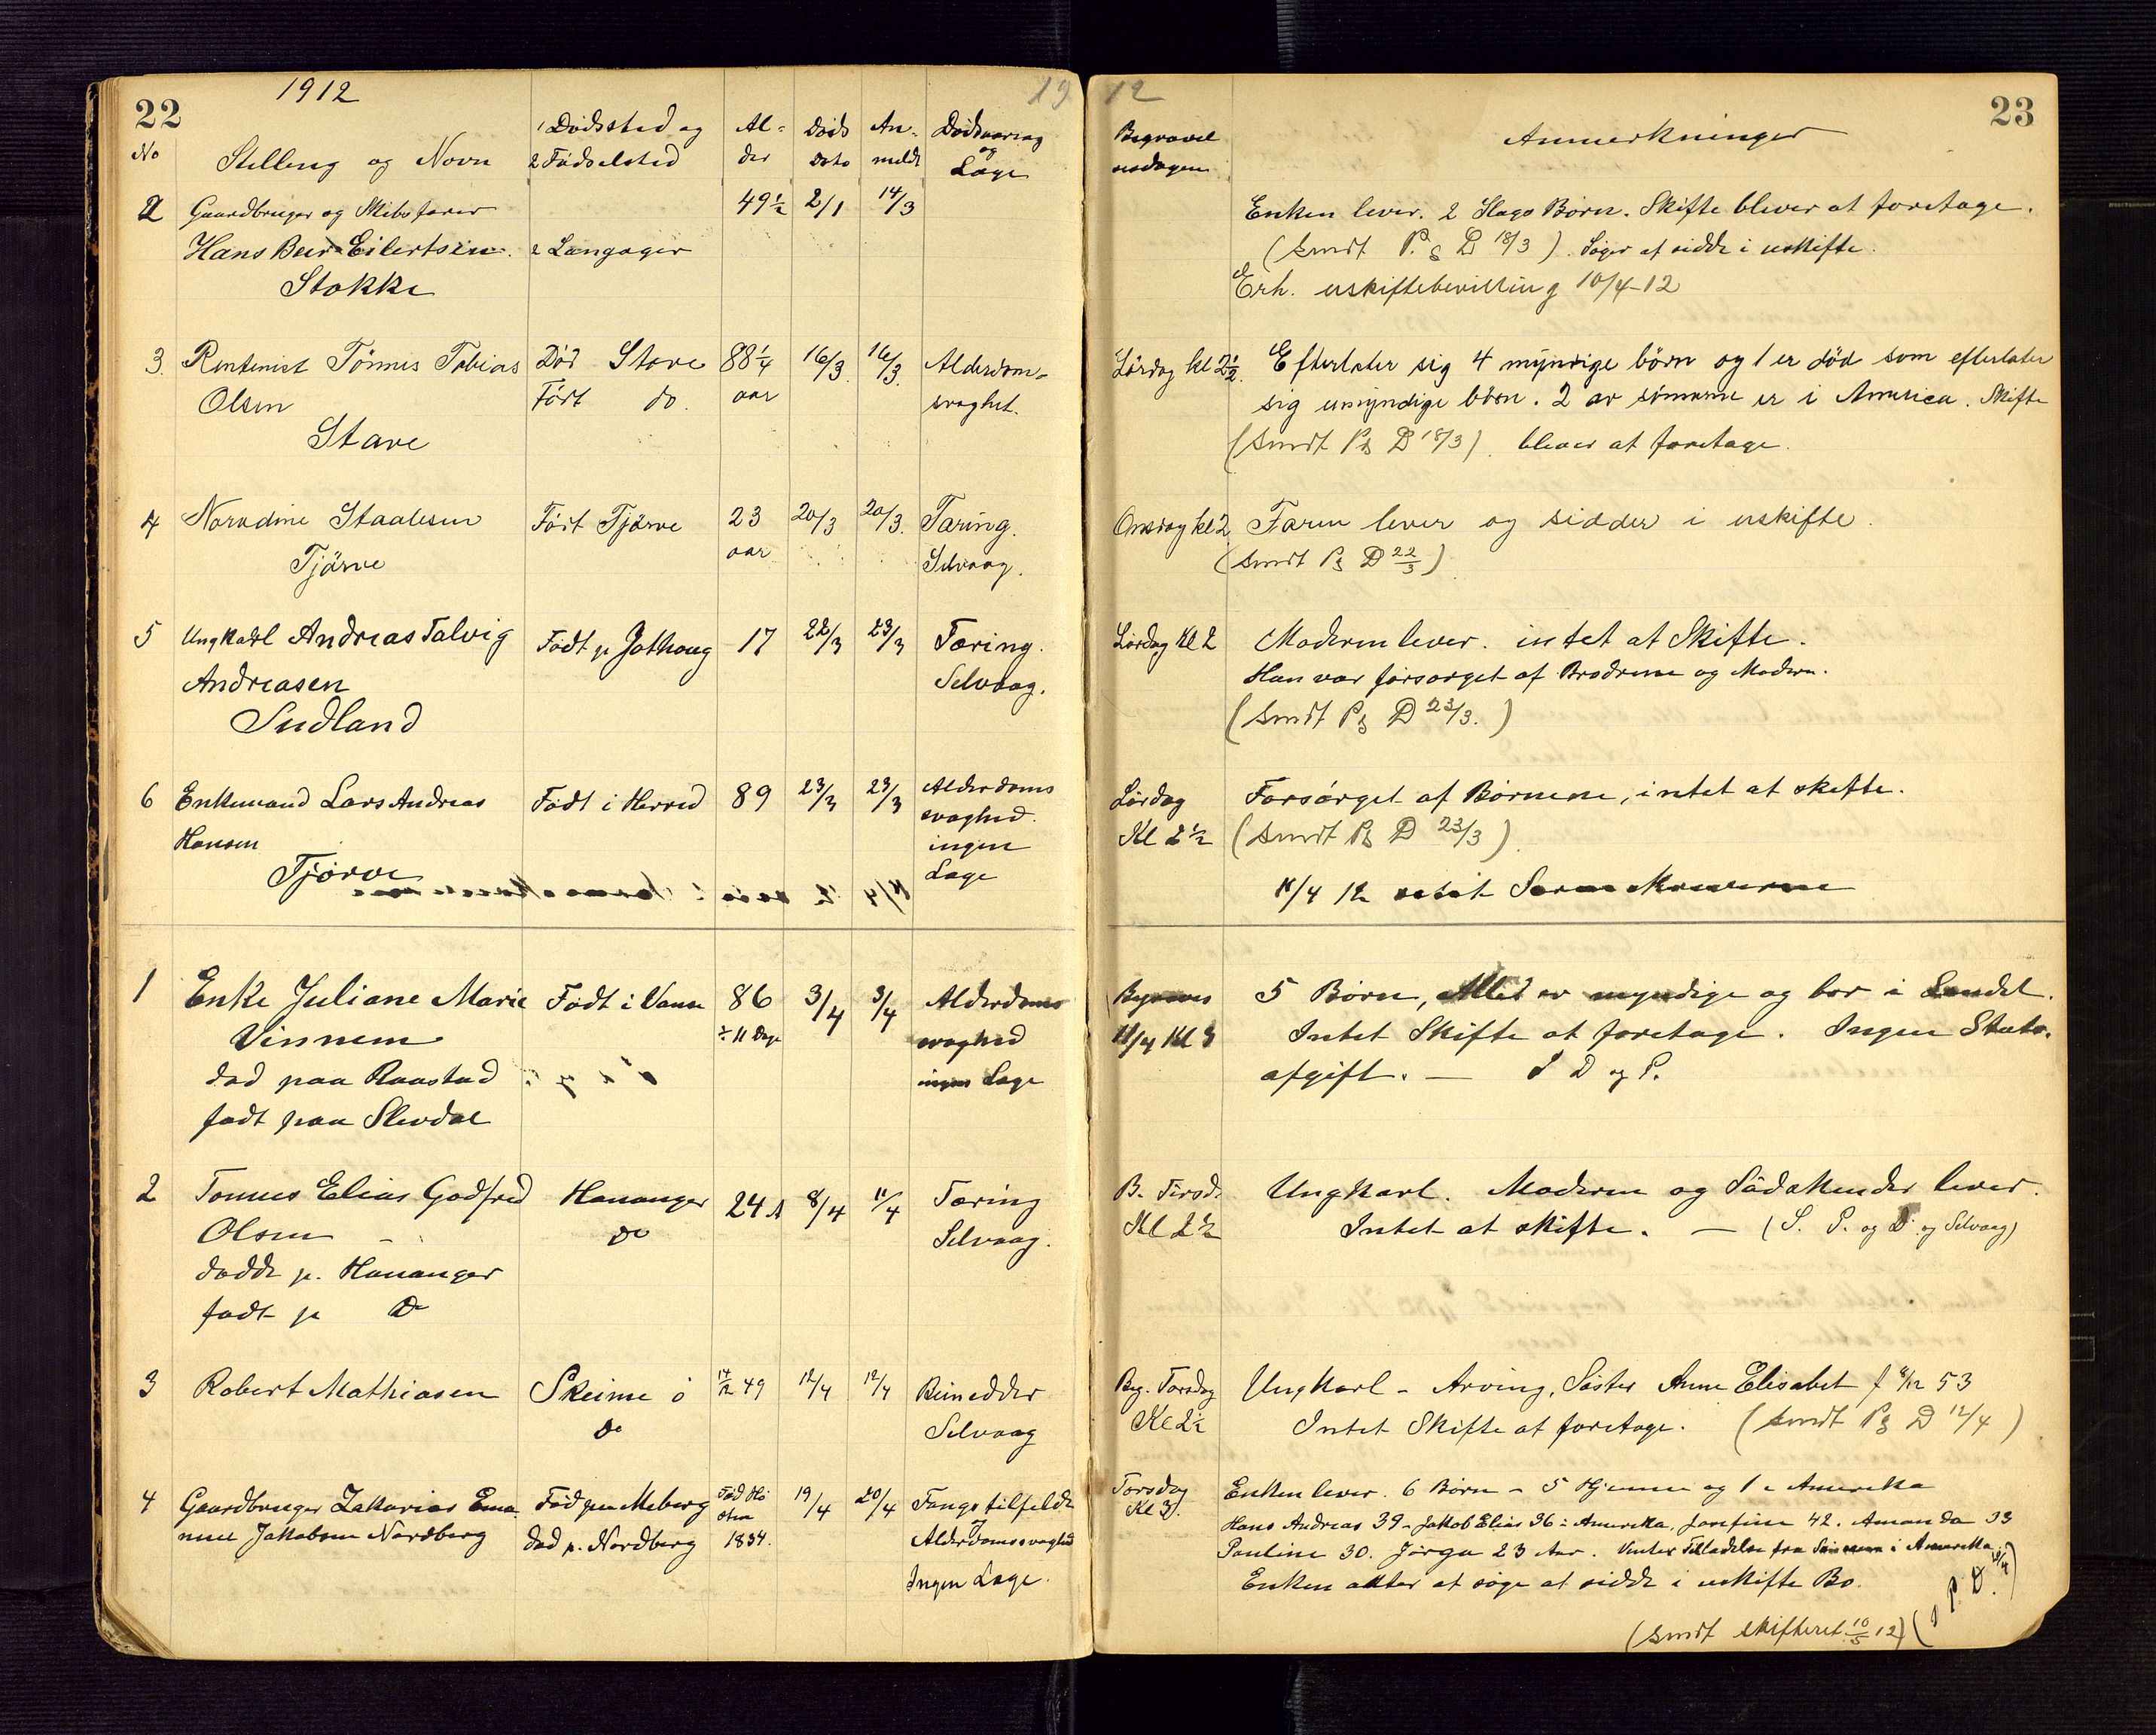 22
1912
19
No
Stilling og Navn
1 Dødssted og
2 Fødselsted
Al-
der
Døds
Dato
An-
meldt
Dødsaarsag
og
Læge
2 Gaardbruger og Skibsfører 49½ 2/1 14/3
Hans Eilertsen. 2 Langager
Stokke
3. Rentenist Tönnes Tobias Död Stave 88¼ 16/3. 16/3. Alderdom-
Olsen Födt do. aar svaghet.
Stave
4 Staalesen Födt Tjörve 23 20/3 20/3. Tæring.
Tjörve aar Selvaag.
5 Ungkarl Andreas Talvig Födt p. Jathaug 17 22/3 23/3 Tæring.
Andreasen Selvaag.
Sudland
6 Enkemand Lars Andreas Födt i Herred 89 23/3 23/3 Alderdoms
Hansen svaghed.
ingen
Tjørve Læge
1 Enke Juliane Marie Födt i Vanse 86 3/4 3/4 Alderdoms
Vinnem ÷ 11 Dage svaghed
död paa Raastad ingen Læge
födt paa Slevdal
2 Tonnes Elias Godfred Hananger 24 A 8/4 11/4 Tæring
Olsen Do Selvaag.
dødde p. Hananger
født p Do
3 Robert Mathiasen Skeime ö 14/12 49 12/4 12/4 Benedder
Do Selvaag
4 Gaardbruger Zakarias Ema- Fød paa Meberg Fød 19/4 20/4
nuel Jakobsen Nordberg død p. Nordberg 1834. Alderdomssvaghed
Ingen Læge.
12
23
Begravel
sesdagen
Anmerkninger
Enken lever. 2 Slags Børn. Skifte bliver at foretage.
(sendt P. & D 18/3). Søger at sidde i uskifte.
Erh. uskiftebevilling 10/4-12
Lördag kl 2½. Efterlater sig 4 myndige börn og 1 er död som efterlater
sig umyndige börn. 2 av sönnerne er i America. Skifte
(sendt P & D 18/3). bliver at foretage.
Onsdag kl 2 Faren lever og sidder i uskifte.
(sendt P & D 22/3)
Lördag Kl 2 Moderen lever. intet at Skifte.
Han var forsørget af Brødrene og Modern.
(sendt P & D 23/3.)
Lørdag Forsørget af Børnene, intet at skifte.
Kl 2½ (sendt P & D 23/3).
12
5 Børn, Alle er myndige og bor i Landet.
11/4 Kl 3 Intet Skifte at foretage. Ingen Stats-
afgift. — S D og P.
B. Tirsd. Ungkarl. Moderen og Sødskender lever.
Kl 2½ Intet at skifte. — (S. P. og D og Selvaag)
Beg. Torsdag Ungkarl - Arving, Søster Anne Elisabet f 53
Kl 2½ Intet Skifte at foretage. (sendt P & D 12/4)
Torsdag Enken lever. 6 Børn - 5 Hjemme og 1 i Amerika
Kl 3. Hans Andreas 39 - Jakob Elias 36 i Amerika, Josefine 42. Amanda 33
Pauline 30. Jørga 23 Aar. Venter Tilladelse fra Sønnen i Amerika.
Enken akter at søge at sidde i uskifte Bo.
(S P. D.
(sendt skifteret 10/5 12)